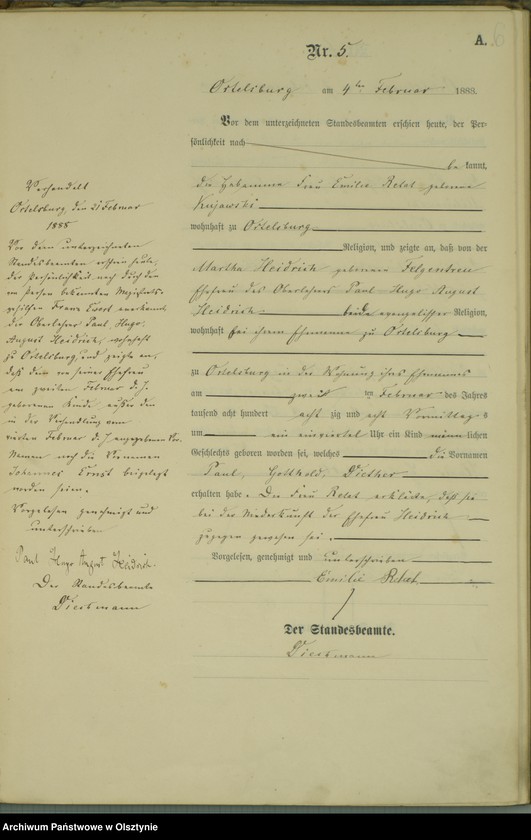 A. 6
Nr. 5.
Ortelsburg am 4ten Februar 1888.
Vor dem unterzeichneten Standesbeamten erschien heute, der Per-
sönlichkeit nach
be kannt,
die Hebamme Frau Emilie geborene
Kujawski
wohnhaft zu Ortelsburg
Religion, und zeigte an, daß von der
Martha Heidrich geborenen
Ehefrau des Oberlehrers Paul Hugo August
Heidrich beide evangelischer Religion,
wohnhaft bei ihrem Ehemanne zu Ortelsburg
zu Ortelsburg in der Wohnung ihres Ehemannes
am zwei ten Februar des Jahres
tausend acht hundert acht zig und acht Vormittags
um ein einviertel Uhr ein Kind männlichen
Geschlechts geboren worden sei, welches die Vornamen
Paul, Gotthold, Diether
erhalten habe. Die Frau erklärte, daß sie
bei der Niederkunft der Ehefrau Heidrich
zugegen gewesen sei.
Vorgelesen, genehmigt und unterschrieben
Emilie
Der Standesbeamte.
Dieckmann
Verhandelt
Ortelsburg, den 21 Februar
1888
Vor dem unterzeichneten
Standesbeamten erschien heute,
der Persönlichkeit nach durch den
von Person bekannten Magistrats-
gehilfen Franz anerkannt,
der Oberlehrer Paul, Hugo,
August Heidrich, wohnhaft
zu Ortelsburg, und zeigte an,
daß dem von seiner Ehefrau
am zweiten Februar d. J.
geborenen Kinde außer den
in der Verhandlung vom
vierten Februar d. J. angegebenen Vor-
namen noch die Vornamen
Johannes Ernst beigelegt
worden seien.
Vorgelesen genehmigt und
unterschrieben
Paul Hugo August Heidrich.
Der Standesbeamte
Dieckmann
Archiwum Państwowe w Olsztynie